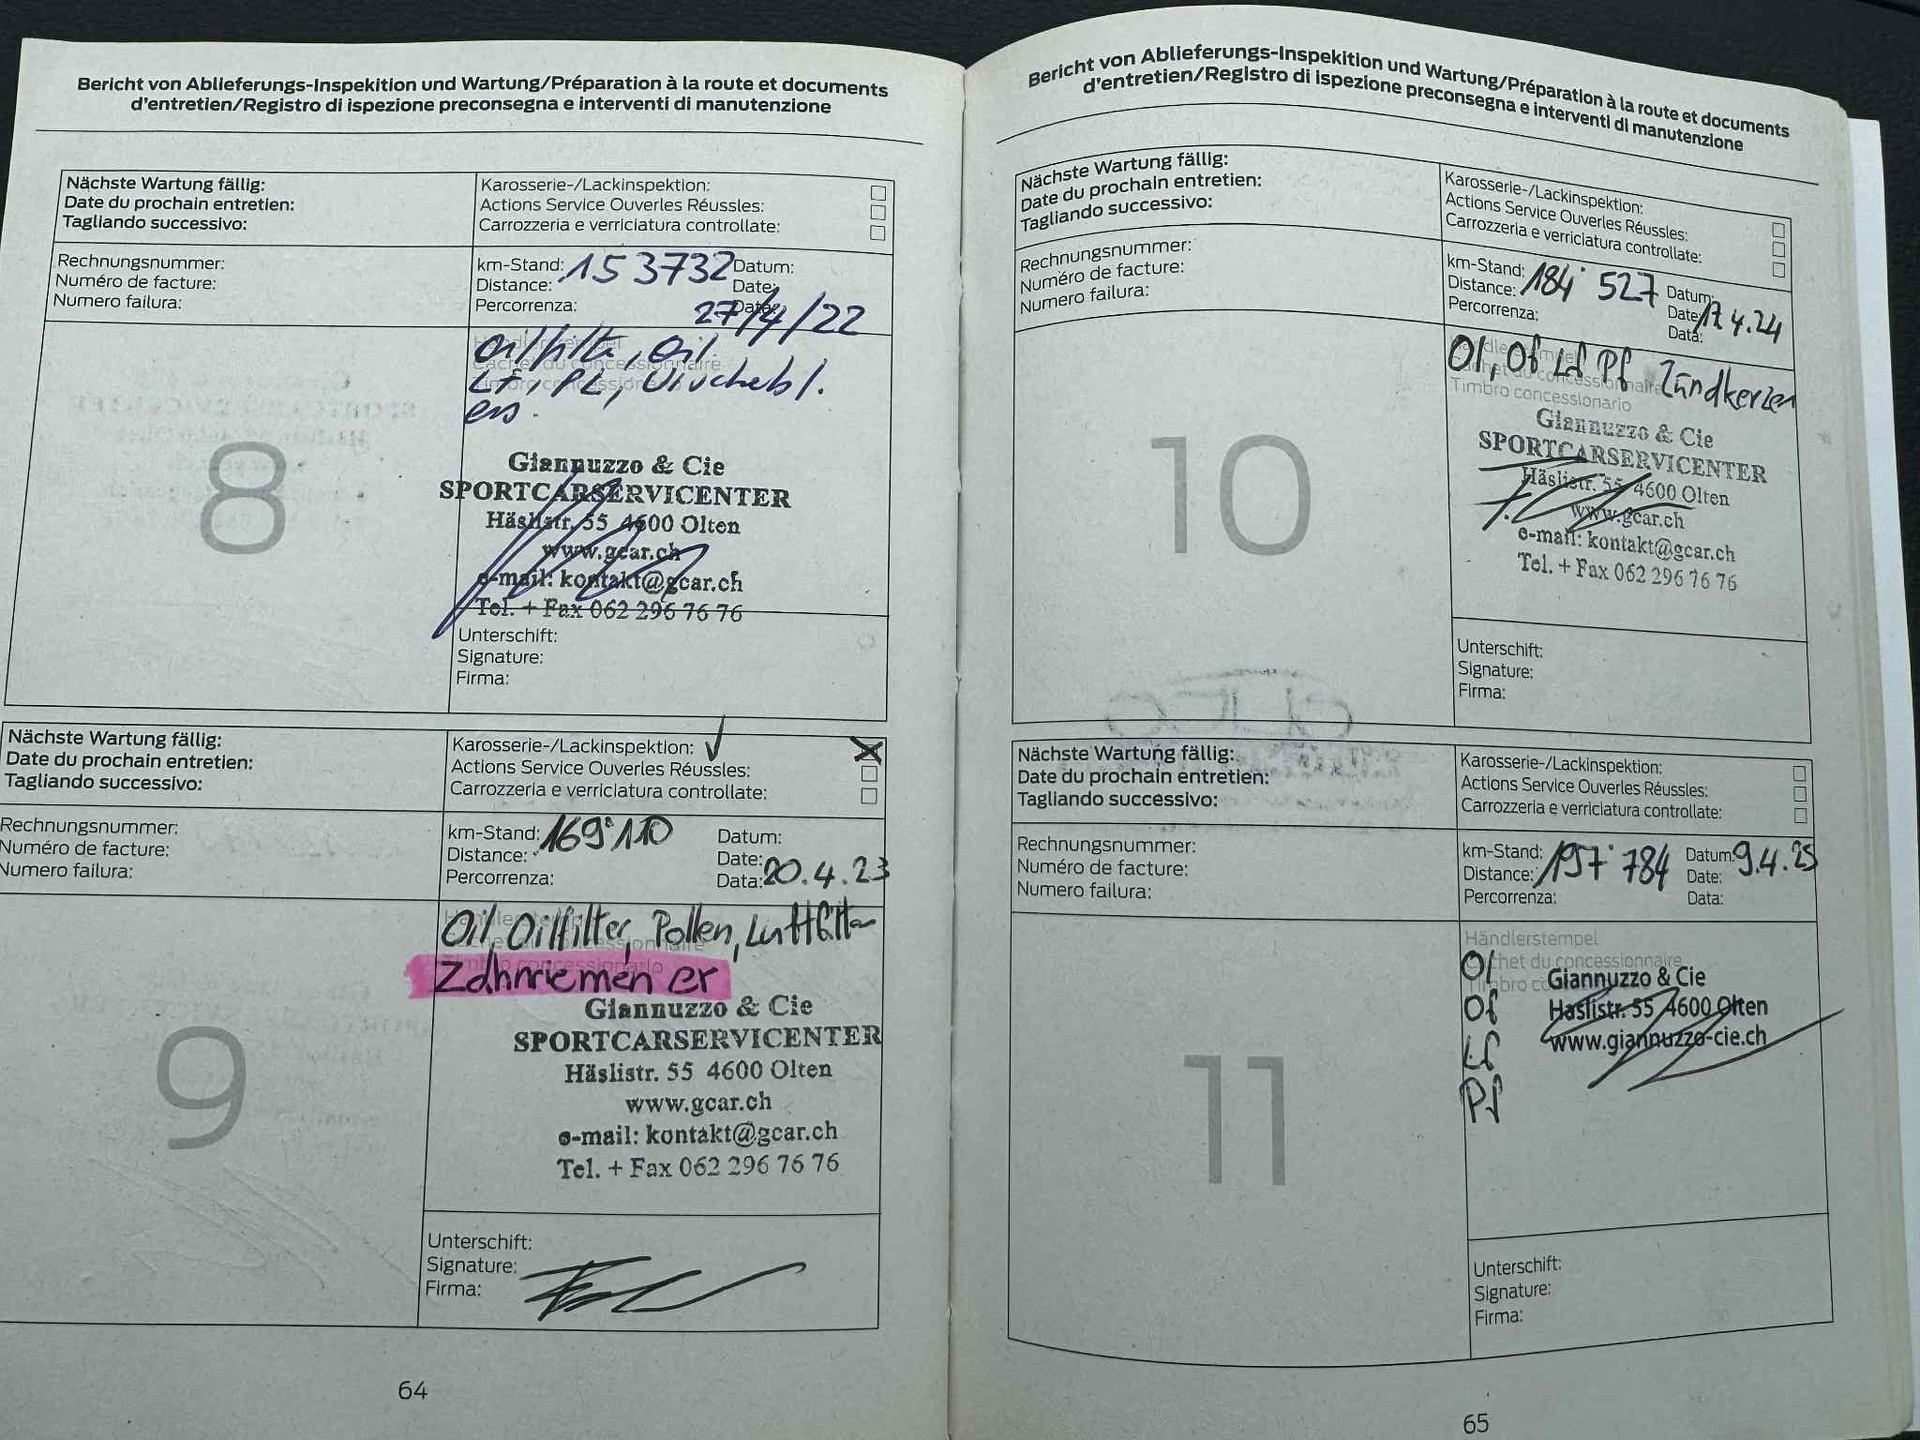 Bericht von Ablieferungs-Inspekition und Wartung/Préparation à la route et documents
d'entretien/Registro di ispezione preconsegna e interventi di manutenzione
Nächste Wartung fällig:
Date du prochain entretien:
Tagliando successivo:
Karosserie-/Lackinspektion:
Actions Service Ouverles Réussles:
Carrozzeria e verriciatura controllate:
Rechnungsnummer:
Numéro de facture:
Numero failura:
km-Stand: 153732 Datum:
Distance: Date:
Percorrenza: Data: 27/4/22
Oilfilter, Oil.
LF, PL,
ers.
8
Giannuzzo & Cie
SPORTCARSERVICENTER
Häslistr. 55 4600 Olten
www.gcar.ch
e-mail: kontakt@gcar.ch
Tel. + Fax 062 296 76 76
Unterschift:
Signature:
Firma:
Nächste Wartung fällig:
Date du prochain entretien:
Tagliando successivo:
Karosserie-/Lackinspektion: ✓
Actions Service Ouverles Réussles:
Carrozzeria e verriciatura controllate:
Rechnungsnummer:
Numéro de facture:
Numero failura:
km-Stand: 169'110 Datum:
Distance: Date:
Percorrenza: Data: 20.4.23
Oil, Oilfilter, Pollen, Luftfilter
Zahnriemen er
9
Giannuzzo & Cie
SPORTCARSERVICENTER
Häslistr. 55 4600 Olten
www.gcar.ch
e-mail: kontakt@gcar.ch
Tel. + Fax 062 296 76 76
Unterschift:
Signature:
Firma:
64
Bericht von Ablieferungs-Inspekition und Wartung/Préparation à la route et documents
d'entretien/Registro di ispezione preconsegna e interventi di manutenzione
Nächste Wartung fällig:
Date du prochain entretien:
Tagliando successivo:
Karosserie-/Lackinspektion:
Actions Service Ouverles Réussles:
Carrozzeria e verriciatura controllate:
Rechnungsnummer:
Numéro de facture:
Numero failura:
km-Stand: 184'527 Datum:
Distance: Date: 17.4.24
Percorrenza: Data:
Öl, Of Lf Pf Zündkerzen
Timbro concessionario
10
Giannuzzo & Cie
SPORTCARSERVICENTER
Häslistr. 55 4600 Olten
www.gcar.ch
e-mail: kontakt@gcar.ch
Tel. + Fax 062 296 76 76
Unterschift:
Signature:
Firma:
Nächste Wartung fällig:
Date du prochain entretien:
Tagliando successivo:
Karosserie-/Lackinspektion:
Actions Service Ouverles Réussles:
Carrozzeria e verriciatura controllate:
Rechnungsnummer:
Numéro de facture:
Numero failura:
km-Stand: 197'784 Datum: 9.4.25
Distance: Date:
Percorrenza: Data:
Händlerstempel
Cachet du concessionnaire
Öl
Of
Lf
Pf
Giannuzzo & Cie
Haslistr. 55 4600 Olten
www.giannuzzo-cie.ch
11
Unterschift:
Signature:
Firma:
65